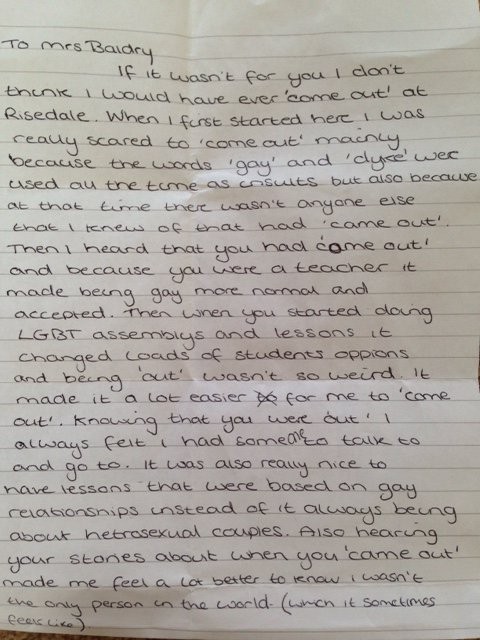 To Mrs Baldry
If it wasn't for you I don't
think I would have ever 'come out' at
Risedale. When I first started here I was
really scared to 'come out' mainly
because the words 'gay' and 'dyke' wer
used all the time as insults but also because
at that time there wasn't anyone else
that I knew of that had 'came out'.
Then I heard that you had come out'
and because you were a teacher it
made being gay more normal and
accepted. Then when you started doing
LGBT assemblys and lessons it
changed loads of students oppions
and being 'out' wasn't so weird. It
made it a lot easier for me to 'come
out'. Knowing that you were 'out' I
always felt I had someone to talk to
and go to. It was also really nice to
have lessons that were based on gay
relationships instead of it always being
about hetrosexual couples. Also hearing
your stories about when you 'came out'
made me feel a lot better to know I wasn't
the only person in the world. (which it sometimes
feels like)